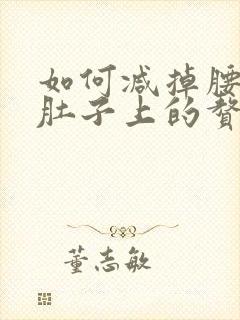 如何减掉腰
肚子上的赘
董志敏